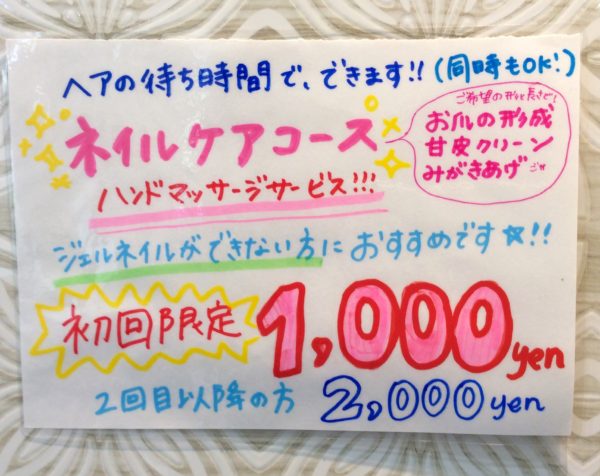 ヘアの待ち時間で、できます!!(同時もOK!)
ネイルケアコース
ご希望の形と長さで!
お爪の形成
甘皮クリーン
みがきあげ
ハンドマッサージサービス!!!
ジェルネイルができない方におすすめです☆!!
初回限定 1,000yen
2回目以降の方 2,000yen